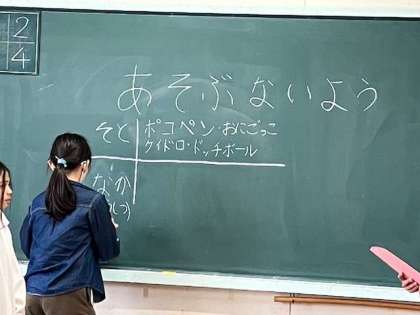 2
4
あそぶないよう
そと ポコペン・おにごっこ
ケイドロ・ドッチボール
なか